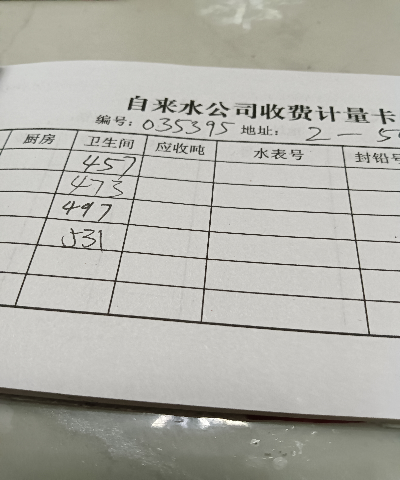 自来水公司收费计量卡
编号：035395 地址： 2-5
厨房 卫生间 应收吨 水表号 封铅号
457
473
497
531